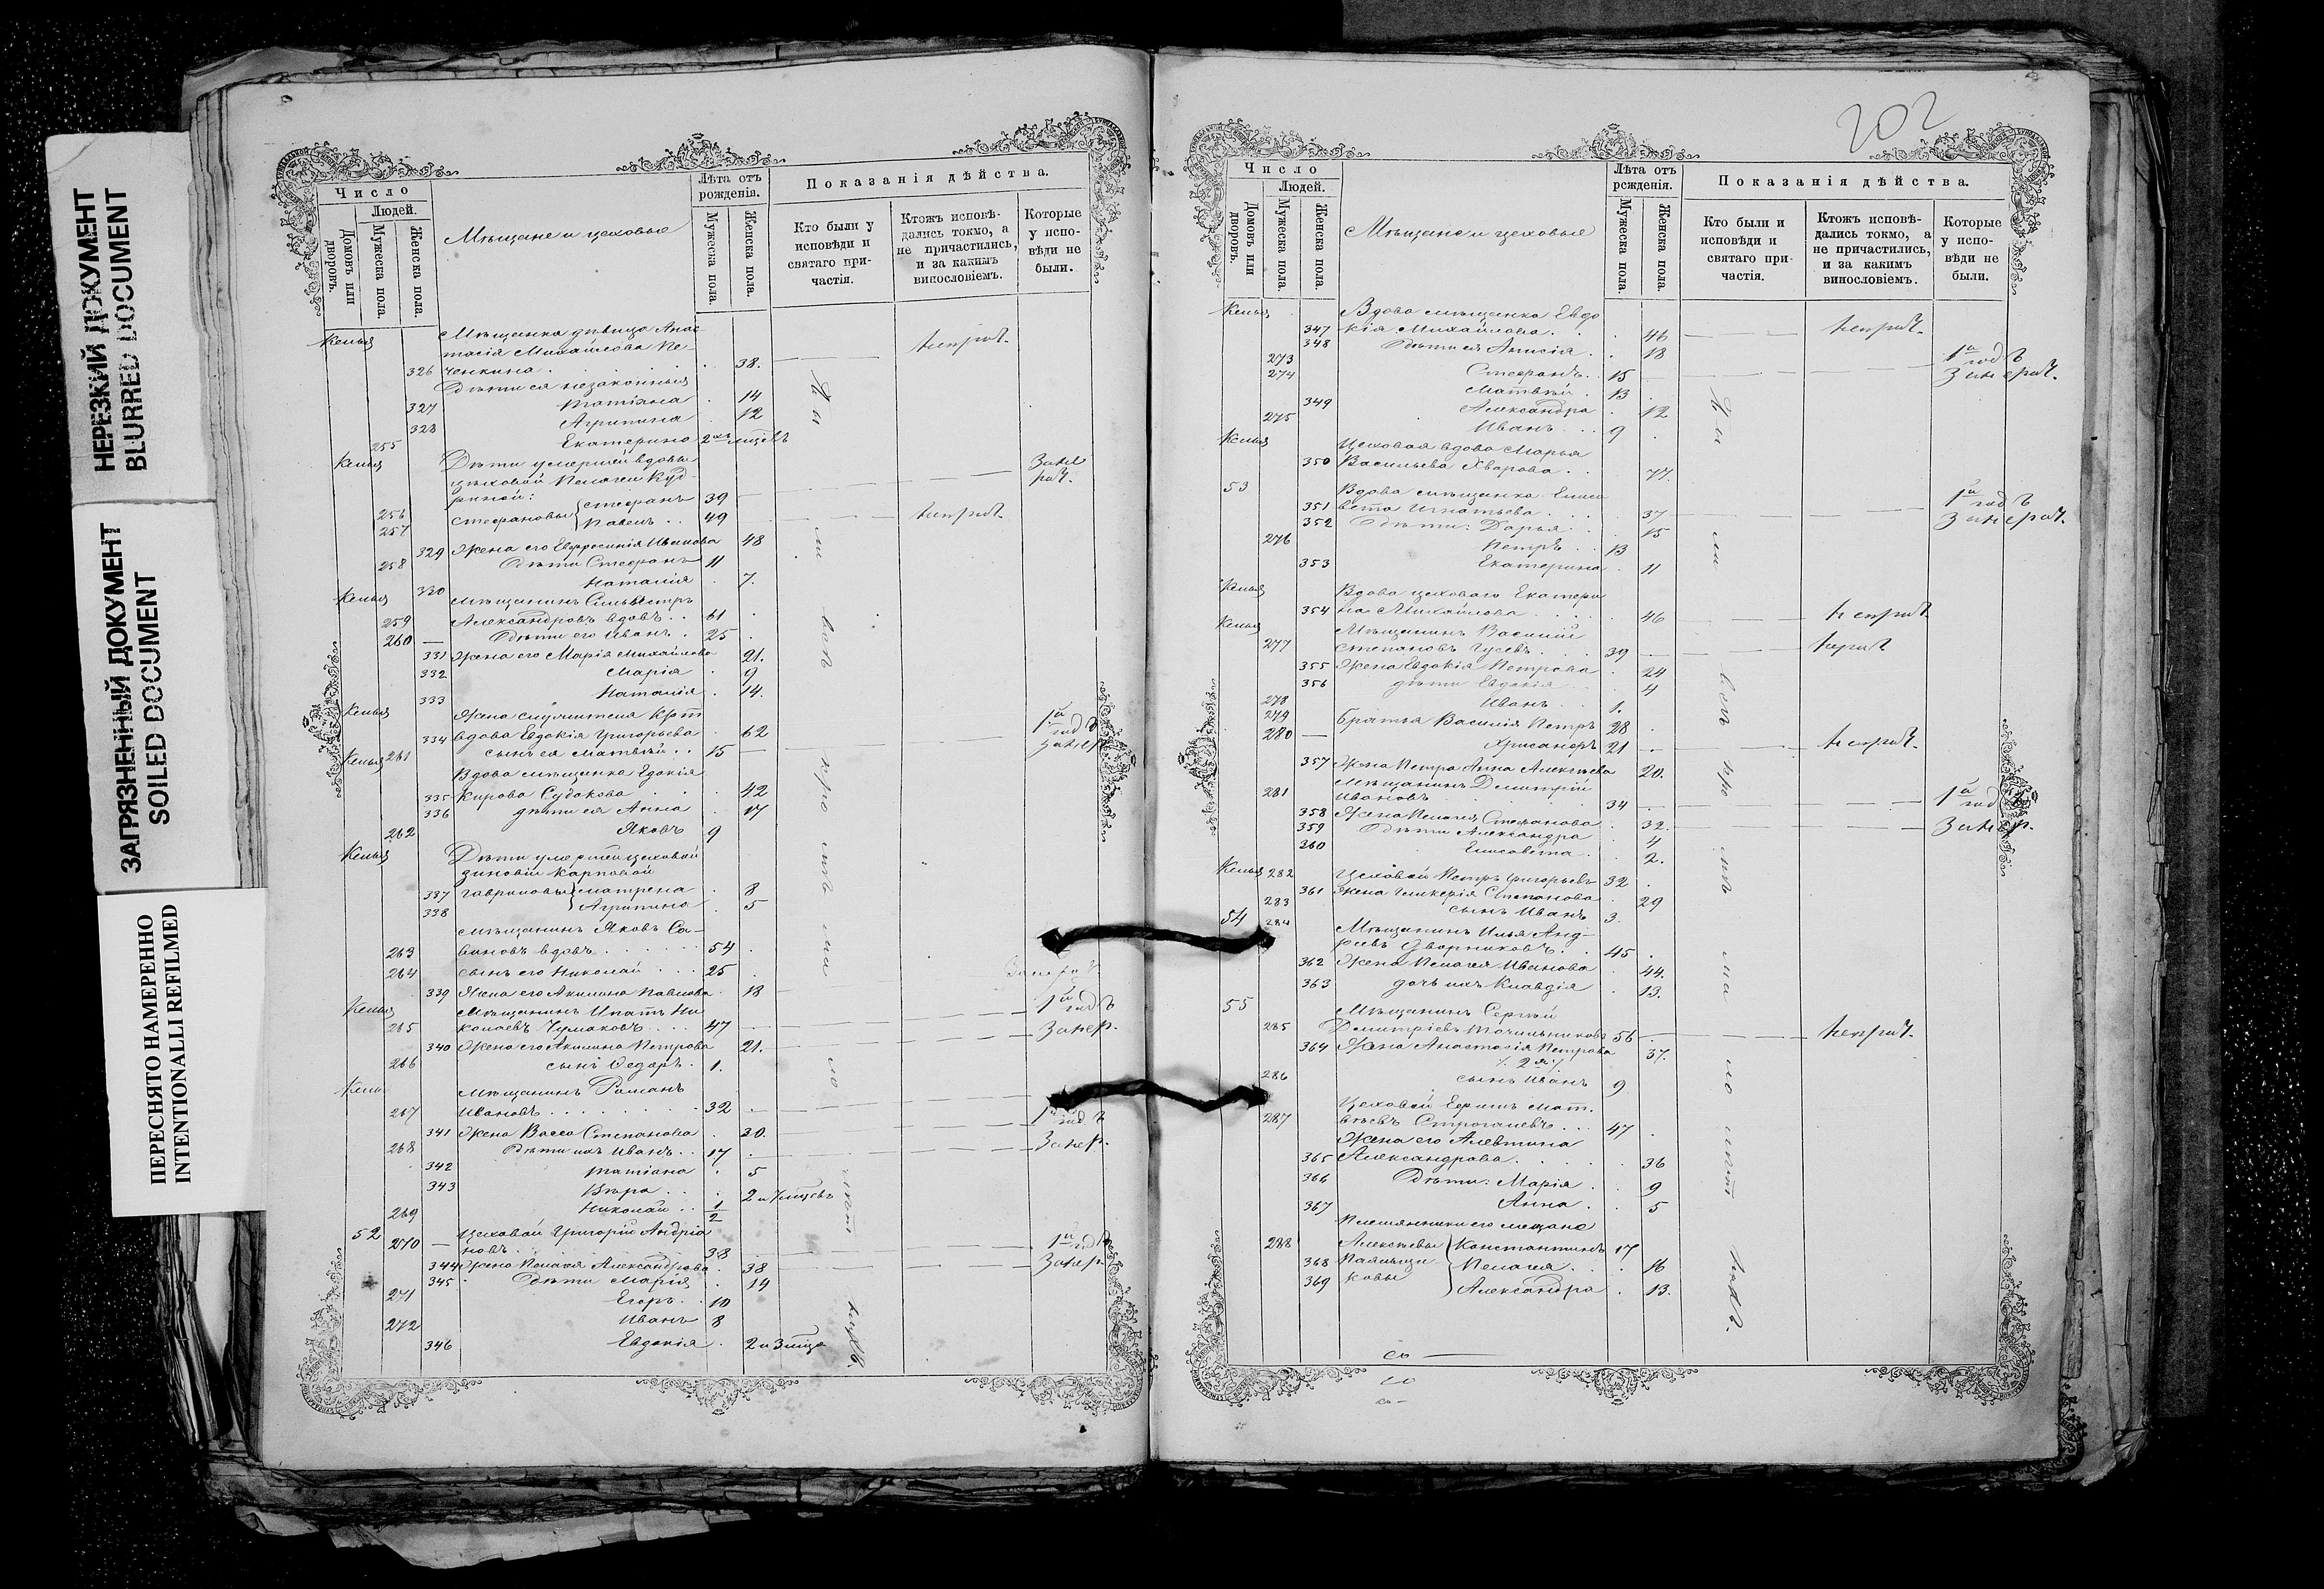 НЕРЕЗКИЙ ДОКУМЕНТ
BLURRED DOCUMENT
ЗАГРЯЗНЕННЫЙ ДОКУМЕНТ
SOILED DOCUMENT
ПЕРЕСНЯТО НАМЕРЕННО
INTENTIONALLI REFILMED
Число
Людей.
Домовъ или дворовъ.
Мужеска пола.
Женска пола.
Мѣщане и цеховые
Лѣта отъ рожденія.
Мужеска пола.
Женска пола.
Показанія дѣйства.
Кто были у исповѣди и святаго причастія.
Ктожъ исповѣдались токмо, а не причастились, и за какимъ винословіемъ.
Которые у исповѣди не были.
Келья Мѣщанка дѣвица Анас-
тасія Михайлова Пе-
326 ченкина 38.
Дѣти ея незаконныя
327 Татіана 14
328 Агрипина 12
255 Екатерина
Келья Дѣти умершей вдовы
цеховой Пелагеи Куд-
риной:
256 Стефановы Стефанъ 39
257 Павелъ 49
329 Жена его Евфросинія Иванова 48
258 Дѣти Стефанъ 11
330 Наталія 7.
Келья Мѣщанинъ Сильвестръ
259 Александровъ вдовъ 61
260 Дѣти его Иванъ 25
331 Жена его Марія Михайлова 21.
332 Марія 9
333 Наталія 14.
Келья Жена
334 вдова Евдокія Григорьева 62
261 сынъ ея Матвѣй 15
Келья Вдова мѣщанка Едокія
335 Кирова Судакова 42
336 дѣти ея Анна 17
262 Яковъ 9
Келья Дѣти умершей цеховой
Зиновіи Карповой
337 Гавриловы Матрена 8
338 Агрипина 5
Мѣщанинъ Яковъ Са-
263 виновъ вдовъ 54
264 сынъ его Николай 25
339 Жена его Акилина Павлова 18
Келья Мѣщанинъ Ипатъ Ни
265 колаевъ Чумаковъ 47
340 Жена его Акилина Петрова 21.
266 сынъ Ѳедоръ 1.
Келья Мѣщанинъ Романъ
267 Ивановъ 32
341 Жена Васса Степанова 30.
268 Дѣти ихъ Иванъ 17
342 Татіана 5
343 Вѣра
269 Николай 1/2
52 270 Цеховой Григорій Андріа
новъ 38
344 Жена Пелагея Александрова 38
345 Дѣти Марія 14
271 Егоръ 10
272 Иванъ 8
346 Евдокія
202
Число
Людей.
Домовъ или дворовъ.
Мужеска пола.
Женска пола.
Мѣщане и цеховые
Лѣта отъ рожденія.
Мужеска пола.
Женска пола.
Показанія дѣйства.
Кто были и исповѣди и святаго причастія.
Ктожъ исповѣдались токмо, а не причастились, и за какимъ винословіемъ.
Которые у исповѣди не были.
Келья Вдова мѣщанка Евдо
347 кія Михайлова 46
348 Дѣти ея Анисія 18
273 Стефанъ 15
274 Матвѣй 13
349 Александра 12
275 Иванъ 9
Келья Цеховая вдова Марья
350 Васильева 77.
53 Вдова мѣщанка Елиса
351 вета Игнатьева 37
352 Дѣти: Дарья 15
276 Петръ 13
353 Екатерина 11
Келья Вдова цеховаго Екатери
354 на Михайлова 46
Келья Мѣщанинъ Василій
277 Степановъ Гусевъ 39
355 Жена Евдокія Петрова 24
356 дѣти Евдокія 4
278 Иванъ 1.
279 Братья Василія Петръ 28
280 Хрисанфъ 21
357 Жена Петра Анна Алексѣева 20.
Мѣщанинъ Димитрій
281 Ивановъ 34
358 Жена Пелагея Стефанова 32.
359 Дѣти Александра 4
360 Елисавета 2.
Келья 282 Цеховой Петръ Григорьевъ 32
361 Жена Гликерія Степанова 29
283 сынъ Иванъ 3.
54 284 Мѣщанинъ Илья Анд-
реевъ Дворниковъ 45
362 Жена Пелагея Иванова 44.
363 дочь ихъ Клавдія 13.
55 Мѣщанинъ Сергѣй
285 Димитріевъ Точильниковъ 56
364 Жена Анастасія Петрова 37.
2я
286 сынъ Иванъ 9
Цеховой Ефимъ Мат.
287 вѣевъ Строгалевъ 47
Жена его Алевтина
365 Александрова 36
366 Дѣти: Марія 9
367 Анна 5
Племянники его мещане
288 Алексѣевы Константинъ 17
368 Паяльщи- Пелагея 16
369 ковы Александра 13.